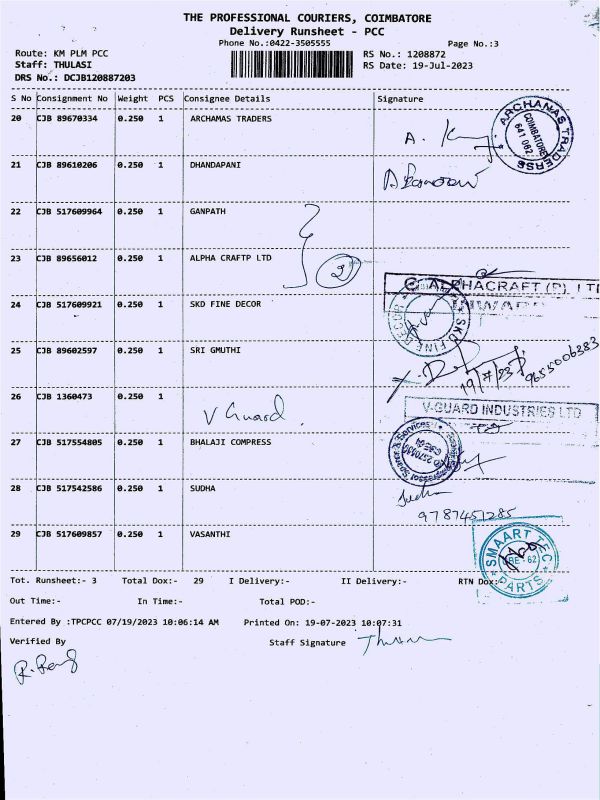 THE PROFESSIONAL COURIERS, COIMBATORE
Delivery Runsheet - PCC
Phone No.:0422-3505555
Page No.:3
Route: KM PLM PCC
RS No.: 1208872
Staff: THULASI
RS Date: 19-Jul-2023
DRS No.: DCJB120887203
S No Consignment No Weight PCS Consignee Details Signature
20 CJB 89670334 0.250 1 ARCHAMAS TRADERS
ARCHANAS TRADERS
COIMBATORE
641 062
21 CJB 89610206 0.250 1 DHANDAPANI
22 CJB 517609964 0.250 1 GANPATH
23 CJB 89656012 0.250 1 ALPHA CRAFTP LTD
2
ALPHACRAFT (P). LTD
INWARD
24 CJB 517609921 0.250 1 SKD FINE DECOR
SKD FINE DECOR
25 CJB 89602597 0.250 1 SRI GMUTHI
19/7/23
9655006383
26 CJB 1360473 0.250 1
V Guard
V-GUARD INDUSTRIES LTD
27 CJB 517554805 0.250 1 BHALAJI COMPRESS
28 CJB 517542586 0.250 1 SUDHA
Sudha
9787451285
29 CJB 517609857 0.250 1 VASANTHI
SMAART TEC PARTS
CBE-62
Tot. Runsheet:- 3 Total Dox:- 29 I Delivery:- II Delivery:- RTN Dox:-
Out Time:- In Time:- Total POD:-
Entered By :TPCPCC 07/19/2023 10:06:14 AM Printed On: 19-07-2023 10:07:31
Verified By Staff Signature